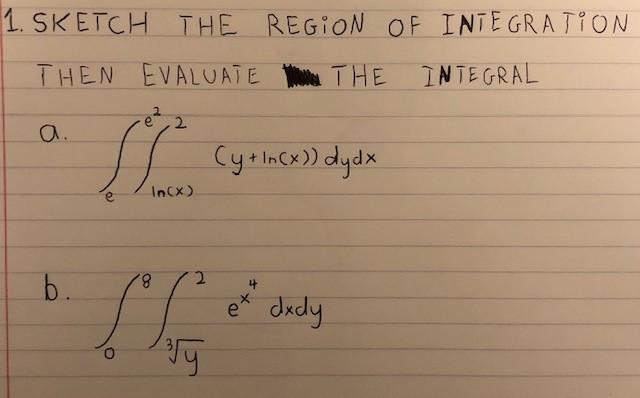 1. SKETCH THE REGION OF INTEGRATION
THEN EVALUATE THE INTEGRAL
a. ∫_e^{e^2} ∫_{ln(x)}^2 (y+ln(x)) dydx
b. ∫_0^8 ∫_{∛y}^2 e^{x^4} dxdy